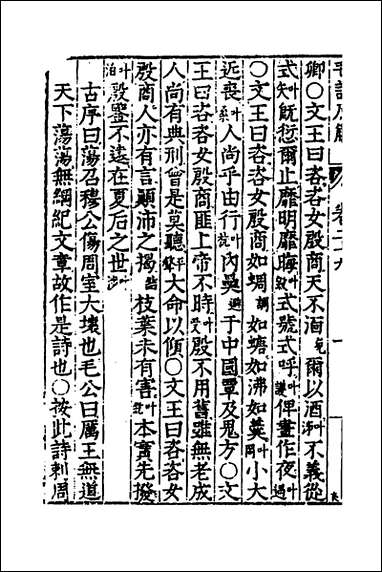 毛詩原解 卷二十九 一
卿○文王曰咨咨女殷商天不湎免爾以酒叶不義從
式叶知既愆爾止靡明靡晦叶式號式呼叶護俾晝作夜叶
○文王曰咨咨女殷商如蜩調如螗如沸如羹叶岡小大
近喪叶桑人尚乎由行叶杭內奰避于中國覃及鬼方○文
王曰咨咨女殷商匪上帝不時叶殷不用舊雖無老成
人尚有典刑曾是莫聽平聲大命以傾○文王曰咨咨女
殷商人亦有言顛沛之揭枝葉未有害叶本實先撥
叶泊殷鑒不遠在夏后之世叶
古序曰蕩召穆公傷周室大壞也毛公曰厲王無道
天下蕩蕩無綱紀文章故作是詩也○按此詩刺周